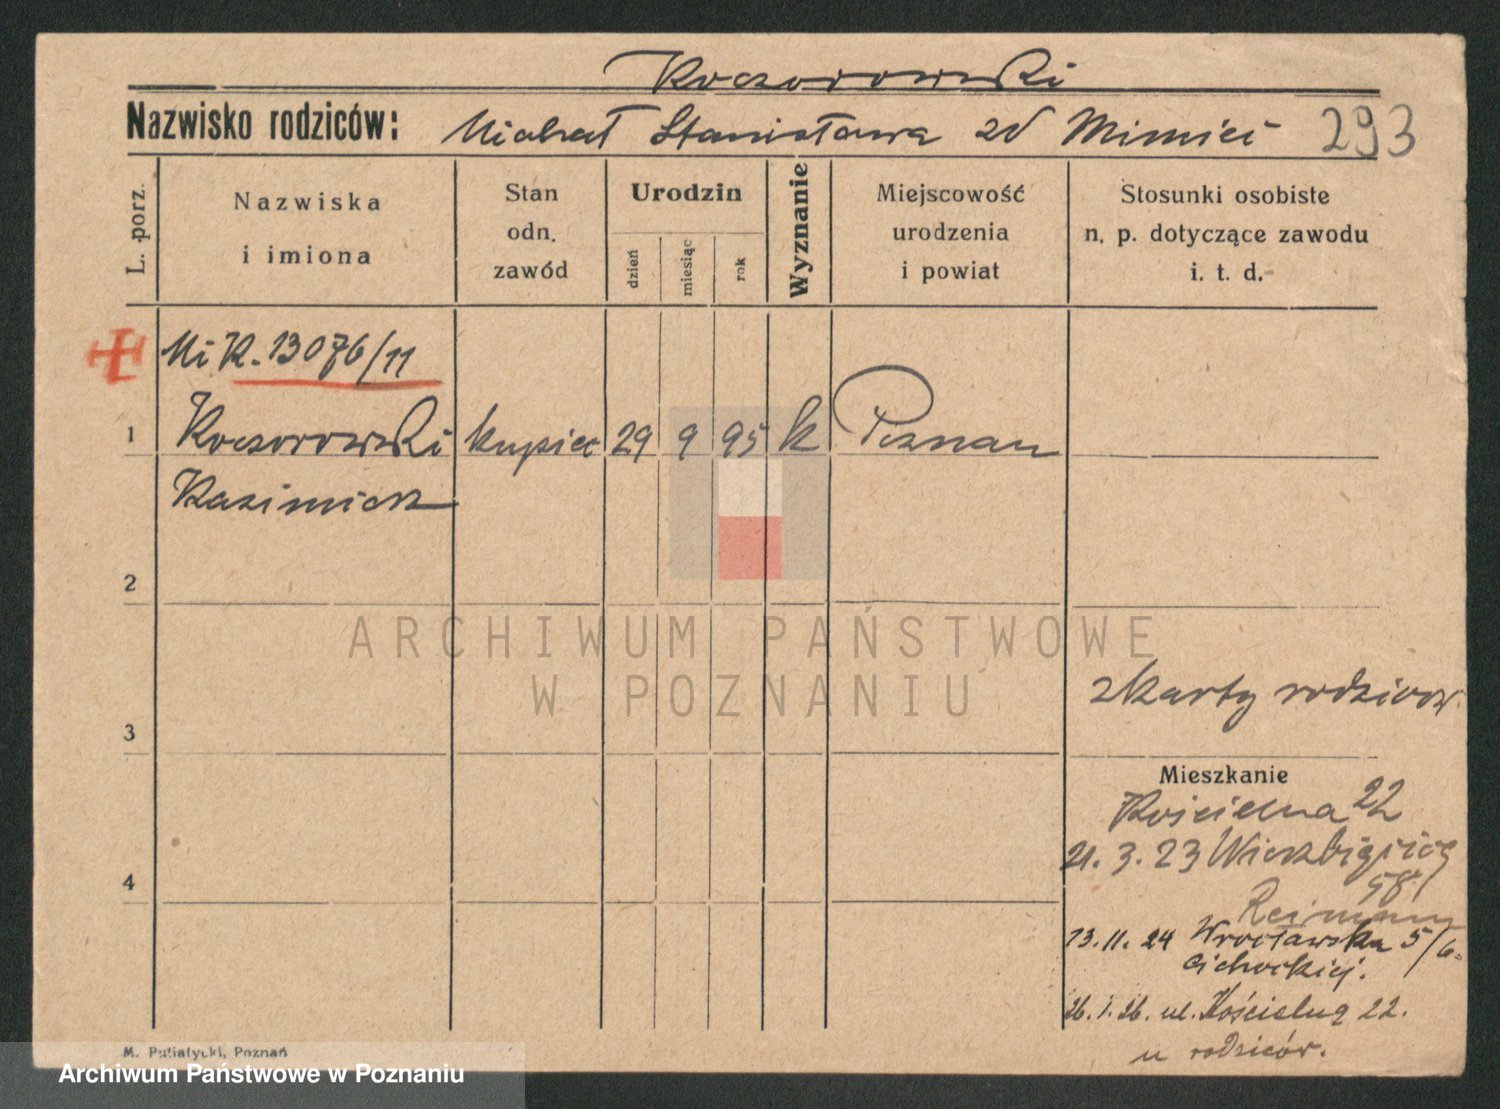 Koczorowski
Nazwisko rodziców: Michał Stanisława zd 293
L. porz.
Nazwiska
i imiona
Stan
odn.
zawód
Urodzin
dzień
miesiąc
rok
Wyznanie
Miejscowość
urodzenia
i powiat
Stosunki osobiste
n. p. dotyczące zawodu
i. t. d.
K. 13076/11
1 Koczorowski kupiec 29 9 95 k Poznan
Kazimierz
2
ARCHIWUM PAŃSTWOWE
W POZNANIU
z karty rodzicow
3
Mieszkanie
Kościelna 22
21. 3. 23 Wierzbięcice
58
4
Reimann
13. 11. 24 Wrocławska 5/6
Cichockiej.
26. 1. 26. ul. Kościelna 22.
u rodziców.
M. Putiatycki, Poznań
Archiwum Państwowe w Poznaniu